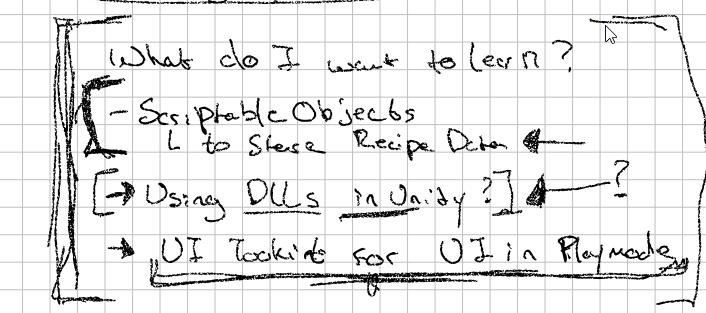 What do I want to learn?
- Scriptable Objects
L to Store Recipe Data
[→ Using DLLs in Unity?] ?
→ UI Toolkit for UI in Playmode